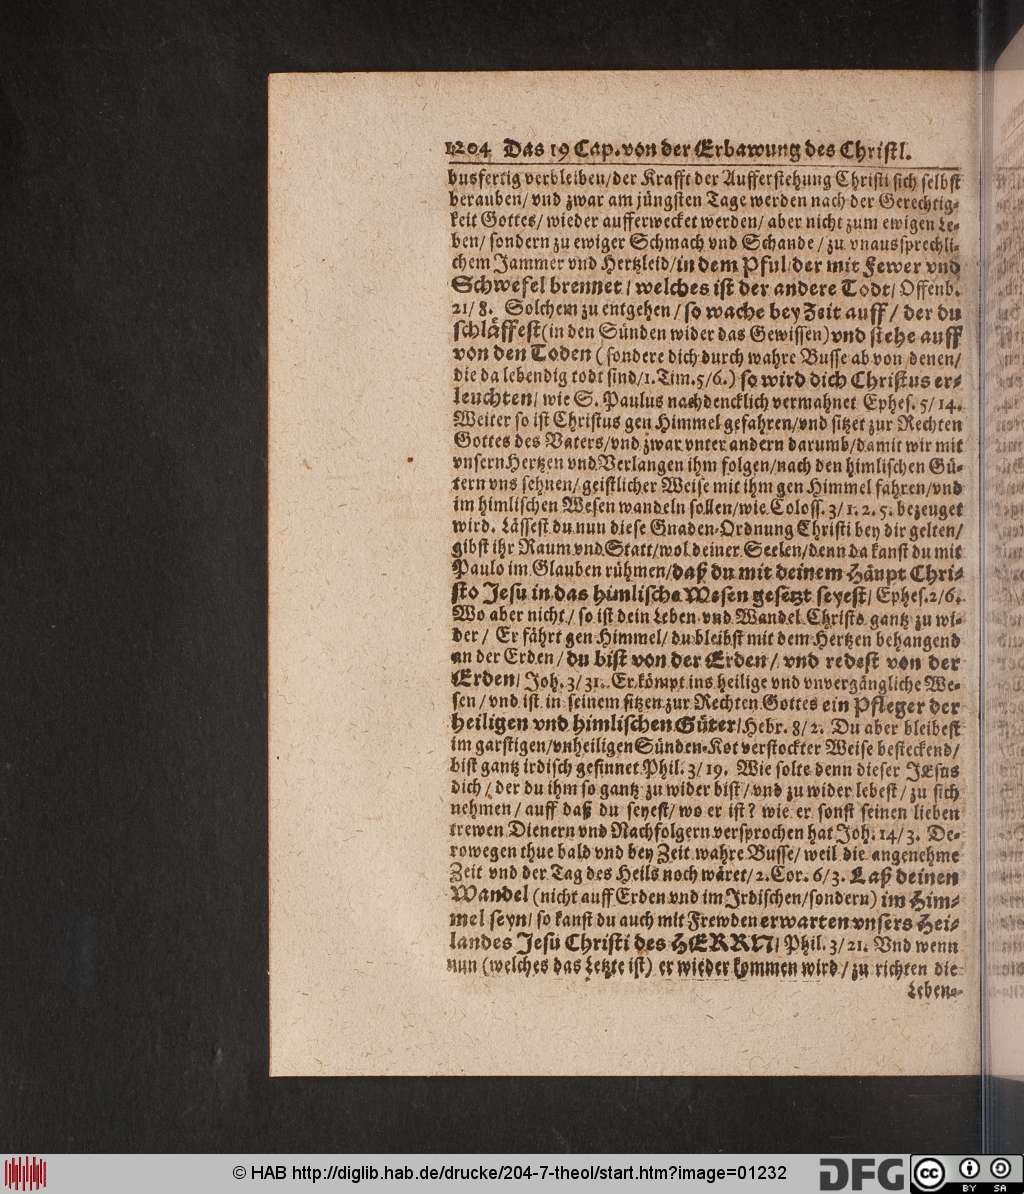 1204 Das 19 Cap. von der Erbawung des Christl.
busfertig verbleiben/der Krafft der Aufferstehung Christi sich selbst
berauben/ vnd zwar am jüngsten Tage werden nach der Gerechtig-
keit Gottes/ wieder aufferwecket werden/ aber nicht zum ewigen Le-
ben/ sondern zu ewiger Schmach vnd Schande/ zu vnaussprechli-
chem Jammer vnd Hertzleid/in dem Pful/der mit Fewer vnd
Schwefel brennet/ welches ist der andere Todt/ Offenb.
21/8. Solchem zu entgehen/ so wache bey Zeit auff/ der du
schläffest(in den Sünden wider das Gewissen)vnd stehe auff
von den Toden (sondere dich durch wahre Busse ab von denen/
die da lebendig todt sind/1.Tim.5/6.) so wird dich Christus er-
leuchten/ wie S. Paulus nachdencklich vermahnet Ephes. 5/14.
Weiter so ist Christus gen Himmel gefahren/vnd sitzet zur Rechten
Gottes des Vaters/vnd zwar vnter andern darumb/damit wir mit
vnsern Hertzen vnd Verlangen ihm folgen/nach den himlischen Gü-
tern vns sehnen/ geistlicher Weise mit ihm gen Himmel fahren/vnd
im himlischen Wesen wandeln sollen/wie Coloss. 3/1. 2. 5. bezeuget
wird. Lässest du nun diese Gnaden-Ordnung Christi bey dir gelten/
gibst ihr Raum vnd Statt/wol deiner Seelen/denn da kanst du mit
Paulo im Glauben rühmen/daß du mit deinem Häupt Chri-
sto Jesu in das himlische Wesen gesetzt seyest/ Ephes.2/6.
Wo aber nicht/ so ist dein Leben vnd Wandel Christo gantz zu wi-
der/ Er fährt gen Himmel/ du bleibst mit dem Hertzen behangend
an der Erden/ du bist von der Erden/ vnd redest von der
Erden/ Joh. 3/31. Er kömpt ins heilige vnd vnvergängliche We-
sen/ vnd ist in seinem sitzen zur Rechten Gottes ein Pfleger der
heiligen vnd himlischen Güter/Hebr. 8/2. Du aber bleibest
im garstigen/vnheiligen Sünden-Kot verstockter Weise besteckend/
bist gantz irdisch gesinnet Phil. 3/19. Wie solte denn dieser JEsus
dich/ der du ihm so gantz zu wider bist/ vnd zu wider lebest/ zu sich
nehmen/ auff daß du seyest/ wo er ist? wie er sonst seinen lieben
trewen Dienern vnd Nachfolgern versprochen hat Joh. 14/3. De-
rowegen thue bald vnd bey Zeit wahre Busse/ weil die angenehme
Zeit vnd der Tag des Heils noch wäret/2.Cor. 6/3. Laß deinen
Wandel (nicht auff Erden vnd im Irdischen/sondern) im Him-
mel seyn/ so kanst du auch mit Frewden erwarten vnsers Hei-
landes Jesu Christi des HERRN/ Phil. 3/21. Vnd wenn
nun (welches das Letzte ist) er wieder kommen wird/ zu richten die
Leben-
© HAB http://diglib.hab.de/drucke/204-7-theol/start.htm?image=01232
DFG
cc
BY SA